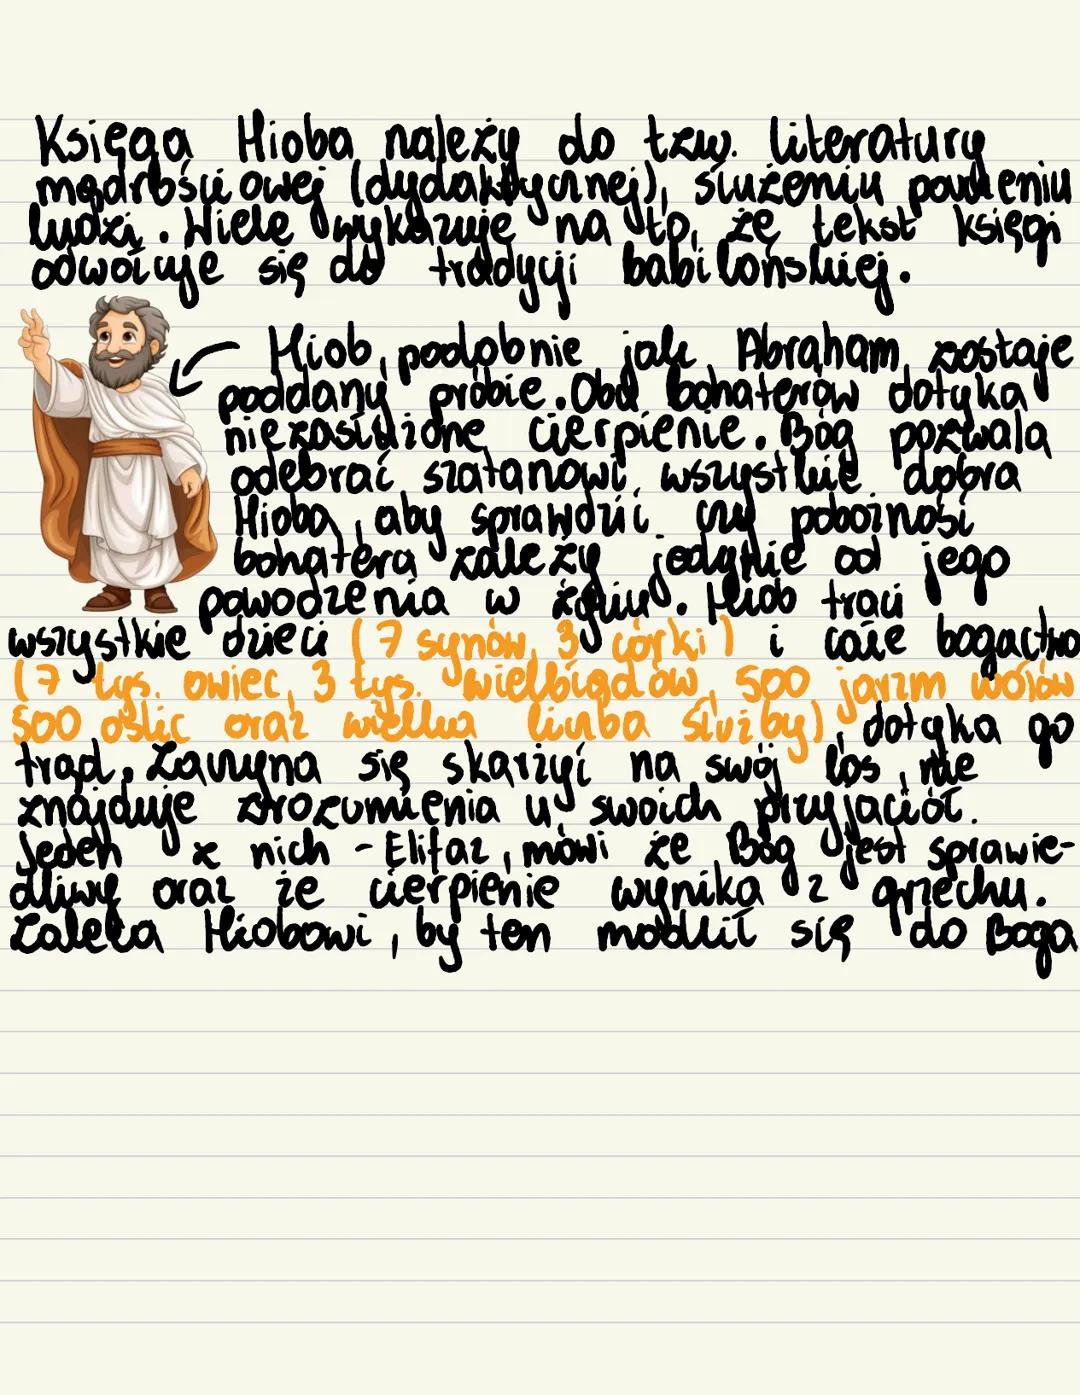 Księga Hioba należy do tzw. literatury
mądrościowej (dydaktycznej), służeniu pouczeniu
ludzi. Wiele wykazuje na to, że tekst księgi
odwołuje się do tradycji babilońskiej.
Hiob, podobnie jak Abraham zostaje
poddany próbie. Obu bohaterów dotyka
niezasłużone cierpienie. Bóg pozwala
odebrać szatanowi wszystkie dobra
Hioba, aby sprawdzić czy pobożność
bohatera zależy jedynie od jego
powodzenia w życiu. Hiob traci
wszystkie dzieci (7 synów, 3 córki) i całe bogactwo
(7 tys. owiec, 3 tys. wielbłądów, 500 jarzm wołów
500 oślic oraz wielka liczba służby), dotyka go
trąd. Zaczyna się skarżyć na swój los, nie
znajduje zrozumienia u swoich przyjaciół.
Jeden z nich - Elifaz, mówi że Bóg jest sprawie-
dliwy oraz że cierpienie wynika z grzechu.
Zaleca Hiobowi, by ten modlił się do Boga